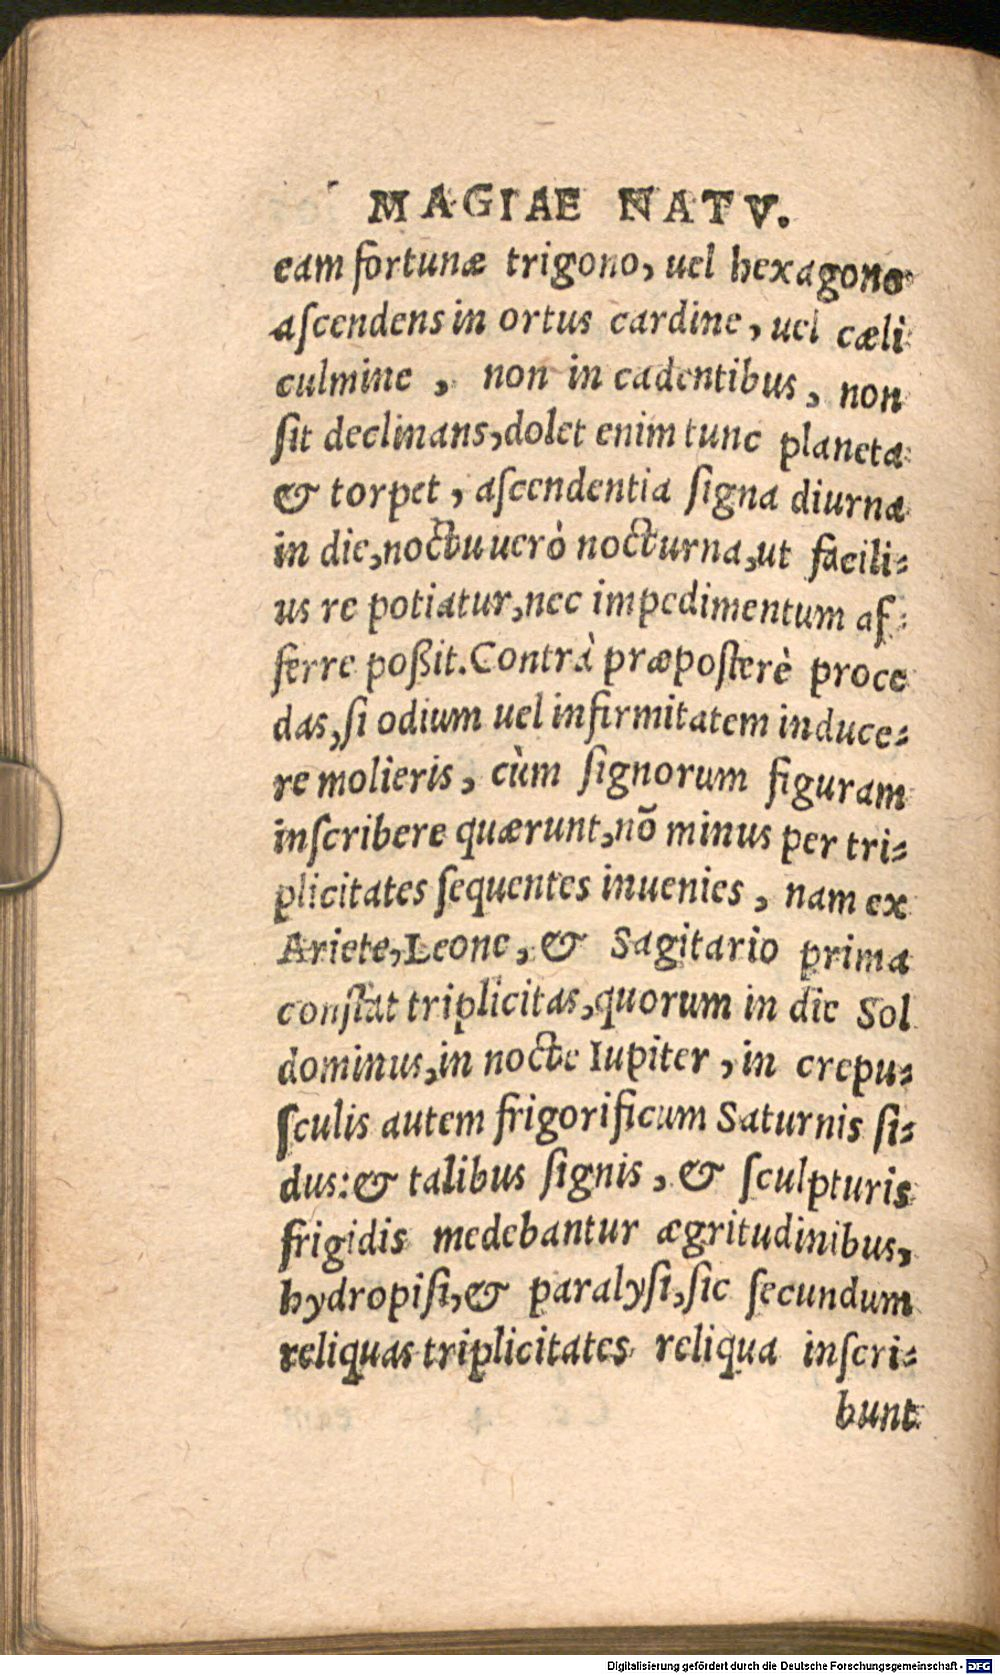 MAGIAE NATV.
eam fortunæ trigono, uel hexagono
aſcendens in ortus cardine, uel cæli
culmine , non in cadentibus, non
ſit declinans, dolet enim tunc planeta
& torpet, aſcendentia ſigna diurna
in die, noctu uerò nocturna, ut facili-
us re potiatur, nec impedimentum af-
ferre poßit. Contrà præpoſterè proce
das, ſi odium uel infirmitatem induce-
re molieris, cùm ſignorum figuram
inſcribere quærunt, nõ minus per tri-
plicitates ſequentes inuenies, nam ex
Ariete, Leone, & Sagitario prima
conſtat triplicitas, quorum in die Sol
dominus, in nocte Iupiter, in crepu-
ſculis autem frigorificum Saturnis ſi-
dus: & talibus ſignis, & ſculpturis
frigidis medebantur ægritudinibus,
hydropiſi, & paralyſi, ſic ſecundum
reliquas triplicitates reliqua inſcri-
bunt
Digitalisierung gefördert durch die Deutsche Forschungsgemeinschaft - DFG